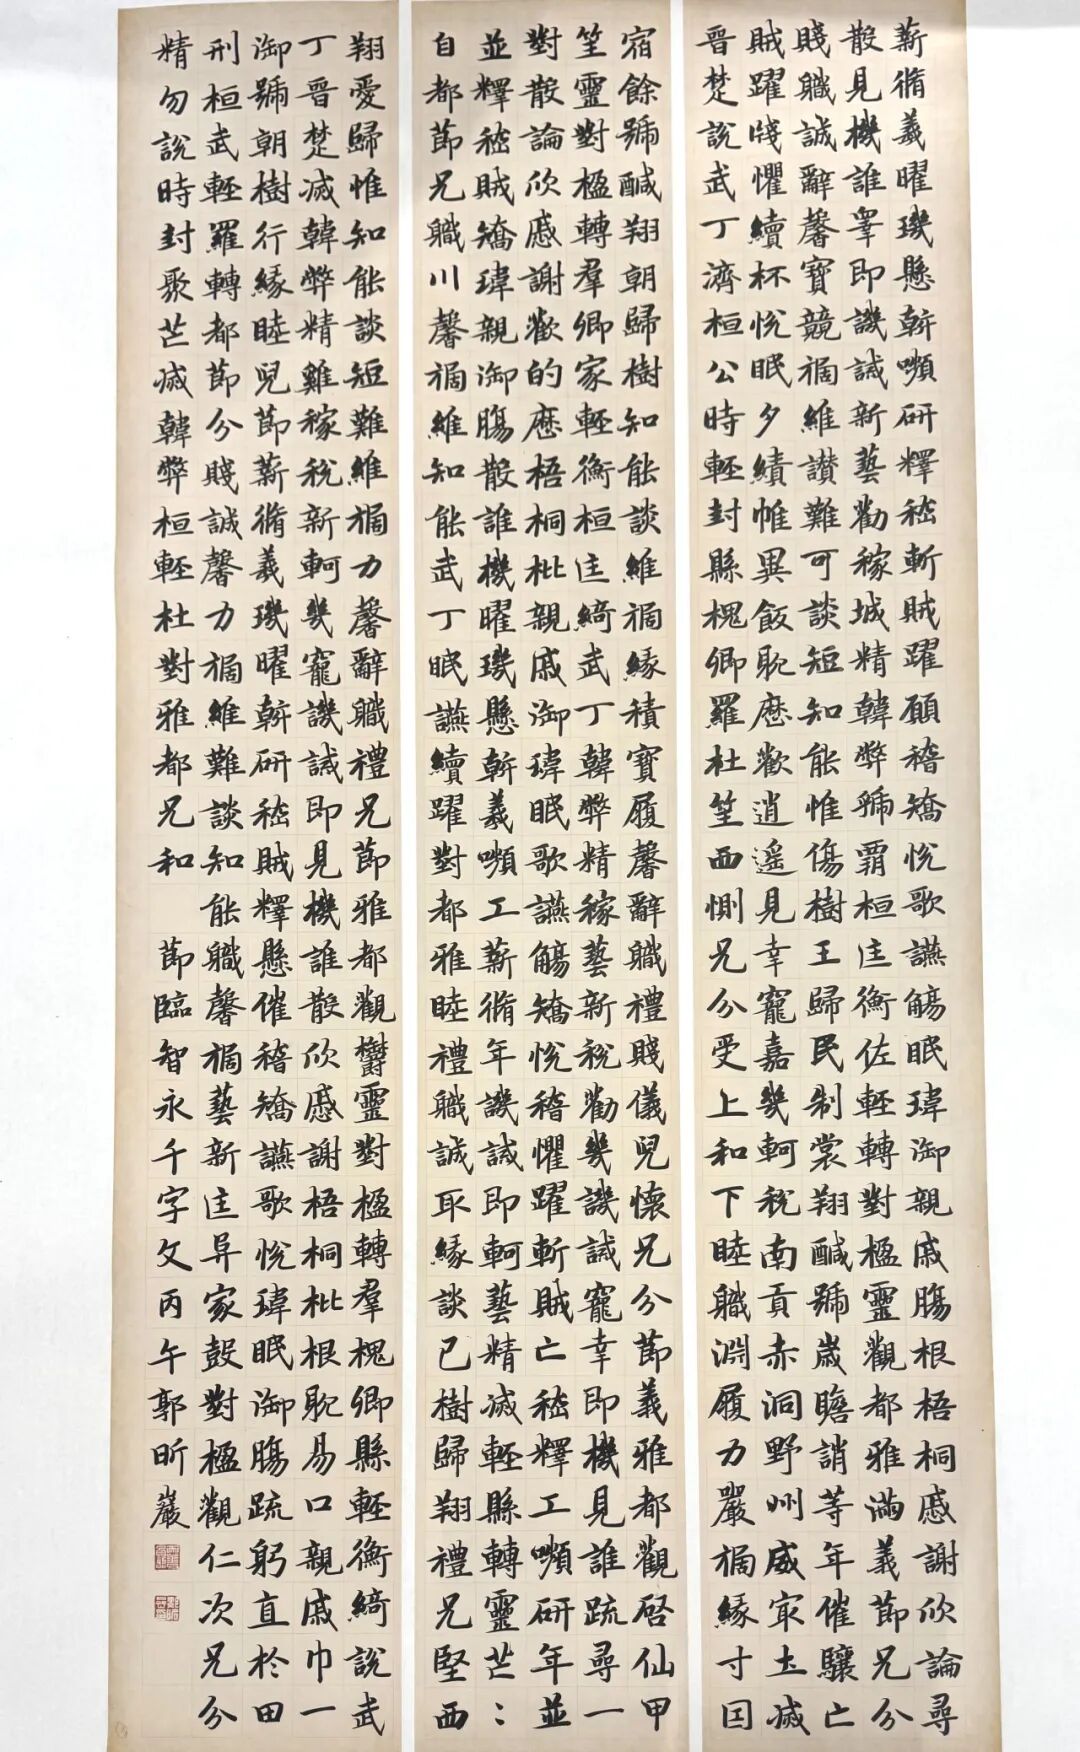 薪脩義曜璣懸斬嚬研釋嵇斬賊躍顧稽矯悅歌讌觴眠瑋御親戚腸根梧桐戚謝欣論尋
散見機誰宰即譏誡新藝勸稼城精韓弊號霸桓匡衡佐輕轉對楹靈觀都雅滿義節兄分
賤職誠辭馨寶競禍維讚難可談短知能惟傷樹王歸民制裳翔鹹號歲瞻誚等年催驤亡
賊躍牋懼續杯悅眠夕績帷異飯耽歷歡逍遙見幸寵嘉幾軻稅南貢赤洞野州威宗土滅
晉楚說武丁濟桓公時輕封縣槐卿羅杜笙西惻兄分受上和下睦職淵履力嚴禍緣寸因
宿餘號鹹翔朝歸樹知能談維禍緣積寶履馨辭職禮賤儀兒懷兄分節義雅都觀啓仙甲
笙靈對楹轉羣卿家輕衡桓匡綺武丁韓弊精稼藝新稅勸幾譏誡寵幸即機見誰疏尋一
對散論欣戚謝歡的歷梧桐枇親戚御瑋眠歌讌觴矯悅稽懼躍斬賊亡嵇釋工嚬研年並
並釋嵇賊矯瑋親御腸散誰機曜璣懸斬義嚬工薪脩年譏誡即軻藝精滅輕縣轉靈芒：
自都節兄職川馨禍維知能武丁眠讌續躍對都雅睦禮職誠取緣談已樹歸翔禮兄堅西
翔愛歸惟知能談短難維禍力馨辭職禮兄節雅都觀鬱靈對楹轉羣槐卿縣輕衡綺說武
丁晉楚滅韓弊精雞稼稅新軻幾寵譏誡即見機誰散欣戚謝梧桐枇根耽易口親戚巾一
御號朝樹行緣睦兒節薪脩義璣曜斬研嵇賊釋懸催稽矯讌歌悅瑋眠御腸疏躬直於田
刑桓武輕羅轉都節分賤誠馨力禍維難談知能職馨禍藝新匡异家設對楹觀仁次兄分
精勿說時封聚芒滅韓弊桓輕杜對雅都兄和
節臨智永千字文丙午郭昕巖